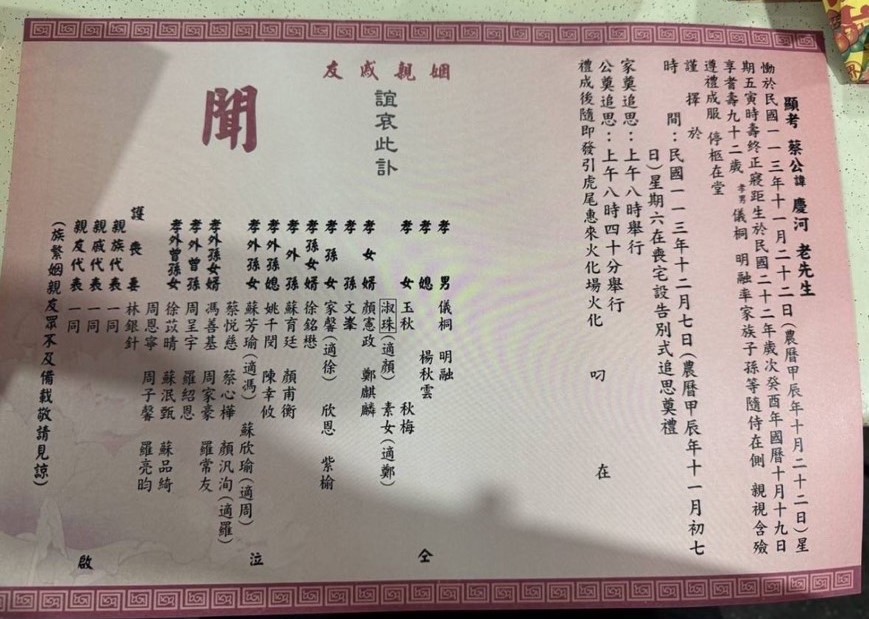 顯考 蔡公諱 慶河 老先生
慟於民國一一三年十一月二十二日(農曆甲辰年十月二十二日)星
期五寅時壽終正寢距生於民國二十二年歲次癸酉年國曆十月十九日
享耆壽九十二歲 孝男儀桐 明融率家族子孫等隨侍在側 親視含殮
遵禮成服 停柩在堂
謹擇於
時 間:民國一一三年十二月七日(農曆甲辰年十一月初七
日)星期六在喪宅設告別式追思奠禮
家奠追思:上午八時舉行
公奠追思:上午八時四十分舉行
禮成後隨即發引虎尾惠來火化場火化
叨 在
姻親戚友
誼哀此訃
聞
孝男 儀桐 明融
孝媳 楊秋雲
孝女 玉秋 秋梅
淑珠(適顏) 素女(適鄭)
孝女婿 顏憲政 鄭麒麟
孝孫 文峯
孝孫女 家馨(適徐) 欣恩 紫榆
孝孫女婿 徐銘懋
孝外孫 蘇育廷 顏甫衡
孝外孫媳 姚千閔 陳幸攸
孝外孫女 蘇芳瑜(適馮) 蘇欣瑜(適周)
蔡悅慈 蔡心樺 顏汎洵(適羅)
孝外孫女婿 馮善基 周家豪 羅常友
孝外曾孫 周呈宇 羅紹恩
孝外曾孫女 徐苡晴 蘇泯甄 蘇品綺
周恩寧 周子馨 羅亮昀
護喪妻 林銀針
親族代表 一同
親戚代表 一同
親友代表 一同
(族繁姻親友眾不及備載敬請見諒)
仝
泣
啟